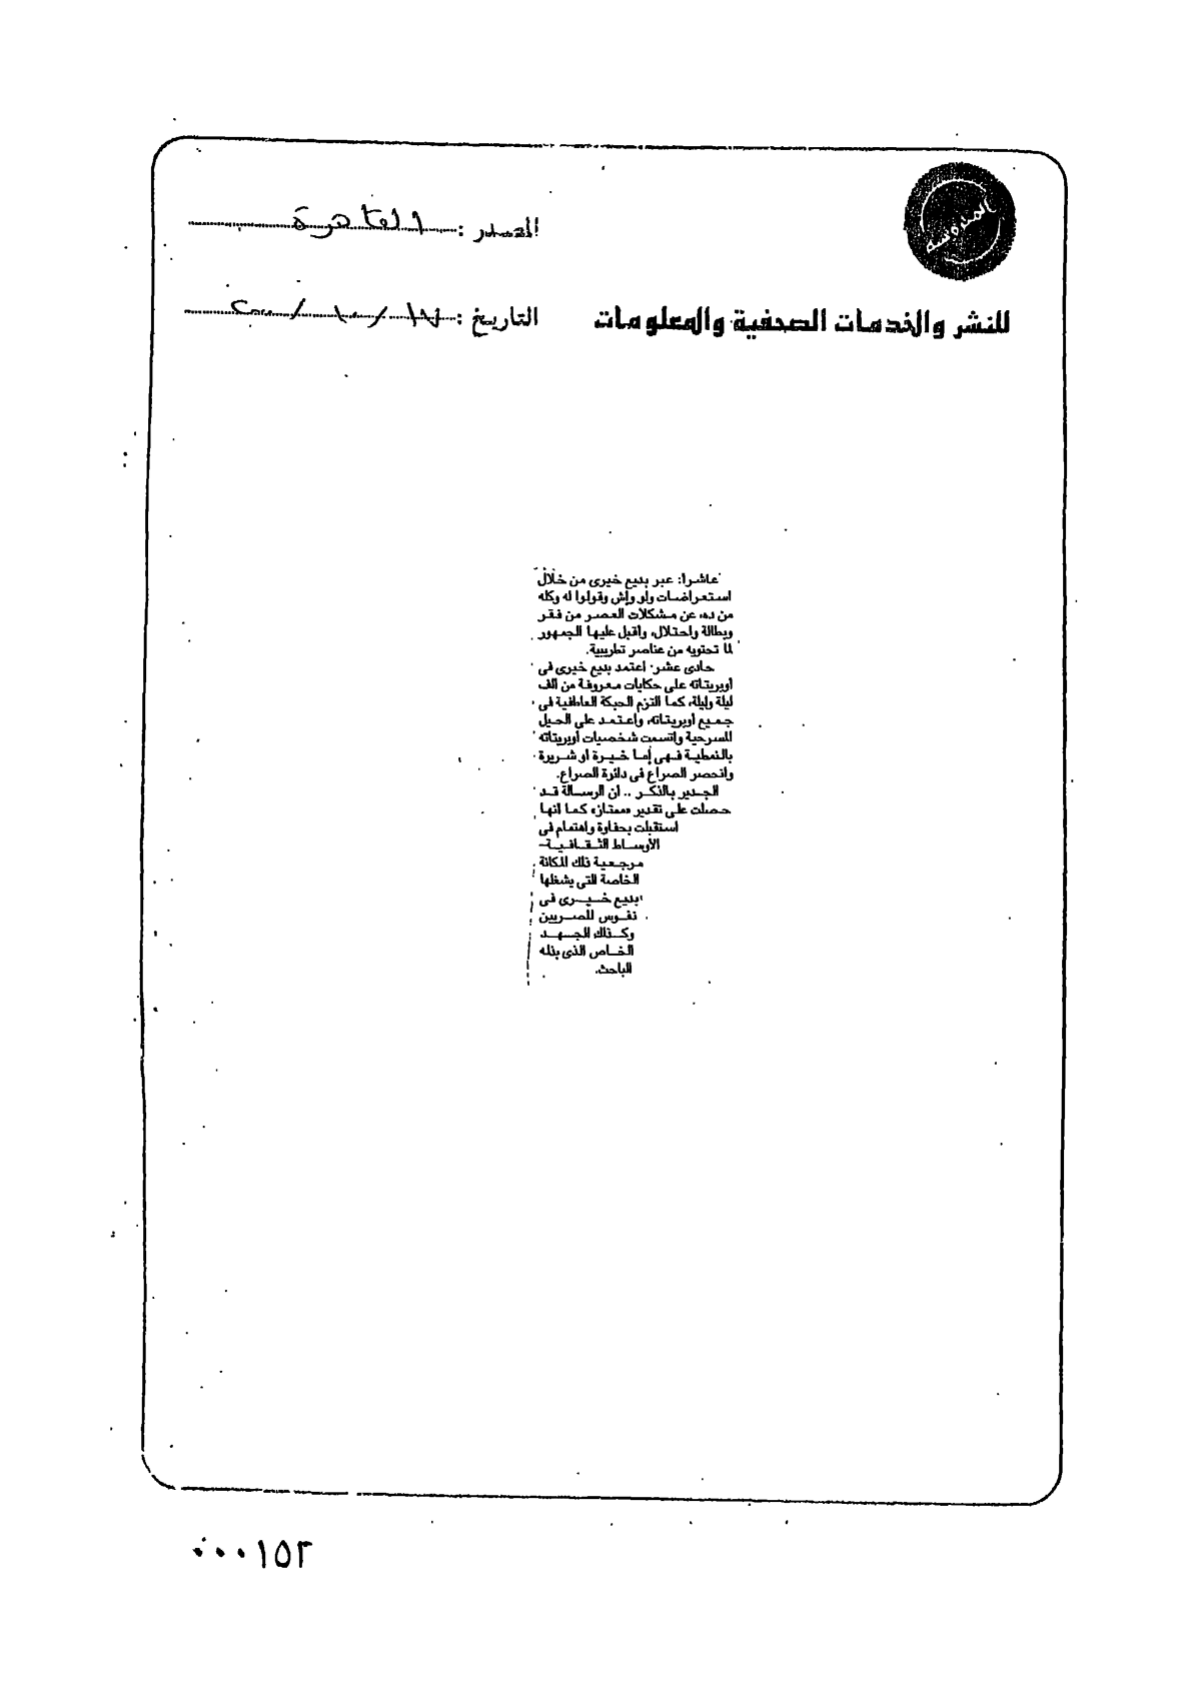 المصدر : القاهرة
للنشر والخدمات الصحفية والمعلومات
التاريخ : ١٧ / ١٠ / ٢٠٠٠
عاشرا: عبر بديع خيرى من خلال
استعراضات ولو وإش وقولوا له وكله
من ده، عن مشكلات العصر من فقر
وبطالة واحتلال، وأقبل عليها الجمهور
لما تحتويه من عناصر تطريبية.
حادى عشر: اعتمد بديع خيرى فى
أوبريتاته على حكايات معروفة من ألف
ليلة وليلة، كما التزم الحبكة العاطفية فى
جميع أوبريتاته، واعتمد على الحيل
المسرحية واتسمت شخصيات أوبريتاته
بالنمطية فهى إما خيرة أو شريرة
وانحصر الصراع فى دائرة الصراع.
الجدير بالذكر .. أن الرسالة قد
حصلت على تقدير «ممتاز» كما أنها
استقبلت بحفاوة واهتمام فى
الأوساط الثقافية-
مرجعية ذلك المكانة
الخاصة التى يشغلها
بديع خيرى فى
نفوس المصريين
وكذلك الجهد
الخاص الذى بذله
الباحث.
٠٠٠١٥٣